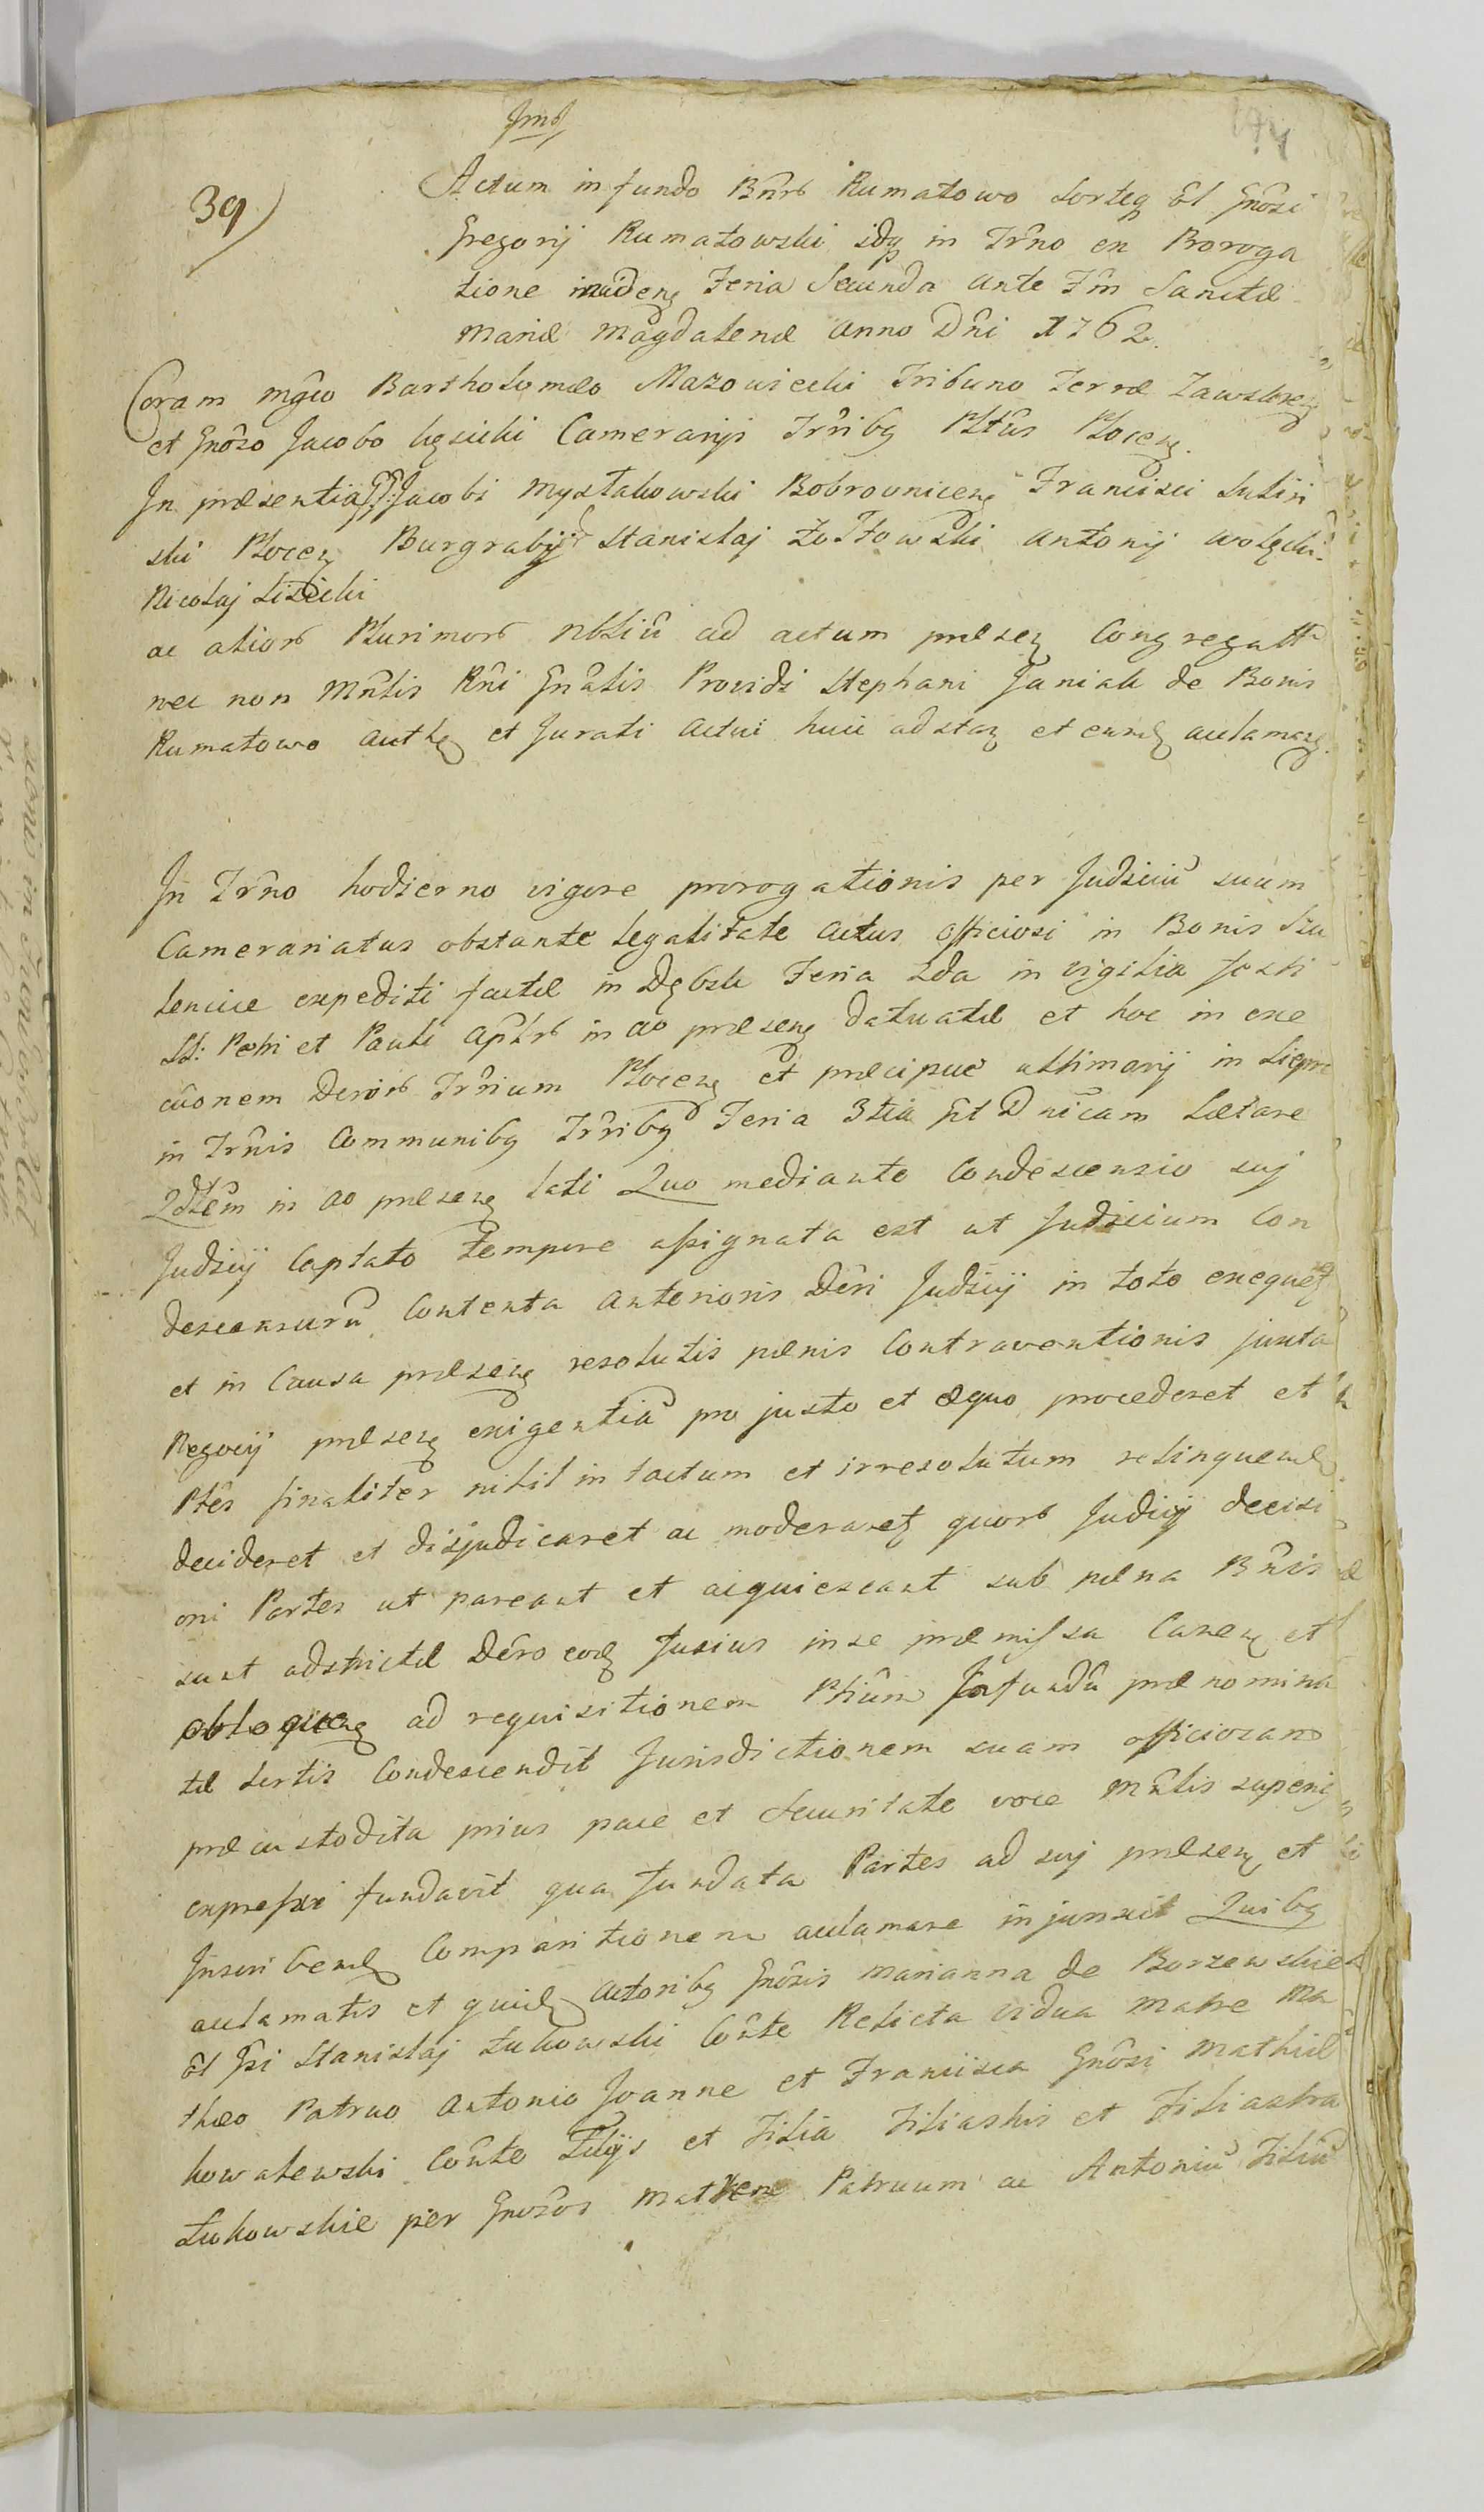 Jmb
194
39)
Actum in fundo Bnrb Rumatowo Sorteq Ol Gnosi
Gregorij Rumatowski idq in Trno ex Proroga
tione incidenę Feria Secunda ante Fm Sanctæ
Mariæ Magdalenæ Anno Dni 1762.
Coram Mgco Bartholomæo Mazowiecki Tribuno Terræ Zawskrzę
et Gnoso Jacobo Kęsicki Camerarijs Trribg Pltûs Plocenę.
In præsentia GG: Jacobi Mystakowski Bobrovnicenę Francisci Lulin
ski Plocenę Burgrabij Stanislaj Żołtowski Antonij Wolęcki
Nicolaj Lisicki
ac aliorb Plurimorb Nbliû ad actum præsenę Congregatt
nec non Mnlis Rni Gnalis Providi Stephani Janiak de Bonis
Rumatowo authę et Jurati Actui huic adstanę et eundę aclamanę.
In Trno hodierno vigore prorogationis per Judiciû suum
Camerariatus obstante legalitate Actus officiosi in Bonis Szu
lencice expediti factæ in Dębsk Feria 2da in vigilia festi
SS: Petri et Pauli Aptlrb in ao præsenę datuatæ et hoc in exe
cûonem Derorb Trrium Plocenę et præcipue ultimarij in Sierpc
in Trnis Communibg Trribg Feria 3tia pt Dnicam Lætare
Qdtêm in ao præsenę lati Quo mediante Condescensio suj
Judicij Captato tempore assignata est ut Judicium Con
descensurû Contenta anterioris Deri Judicij in toto exequet
et in Causa præsenę resolutis pænis Contraventionis juxta
Negocij præsenę exigentiâ pro justo et æquo procederet et
Ptes finaliter nihil in tactum et irresolutum relinquendę
decideret et disjudicaret ac moderaretę quorb Judicij decisi
oni Partes ut pareant et acquiescant sub pæna Bnis
sunt adstrictæ Dero eodę fusius in se præmissa Canenę et
obloquenę ad requisitionem Ptiûm In fundû prænomina
tæ Sortis Condescendit Jurisdictionem suam officiosam
præcustodita prius pace et Securitate voce Mnlis superig
expressi fundavit qua fundata Partes ad suj præsenę et
Inscribendę Comparitionem aclamare injunxit Quibg
aclamatis et quidę Actoribg Gnosis Marianna de Borzewskie
Ol Gsi Stanislaj Łukowski Conte Relicta vidua Matre Ma
thæo Patruo Antonio Joanne et Francisca Gnosi Mathiæ
Kowalewski Conte Filijs et Filia Filiastris et Filiastra
Łukowskie per Gnosos Matrem Patruum ac Antoniû Filiû